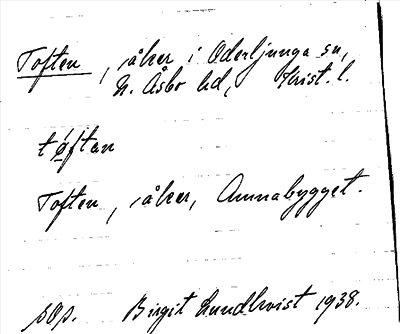 Toften, åker i Oderljunga sn,
N. Åsbo hd, Krist. l.
tøftan
Toften, åker, Annabygget.
Birgit Lundkvist 1938.